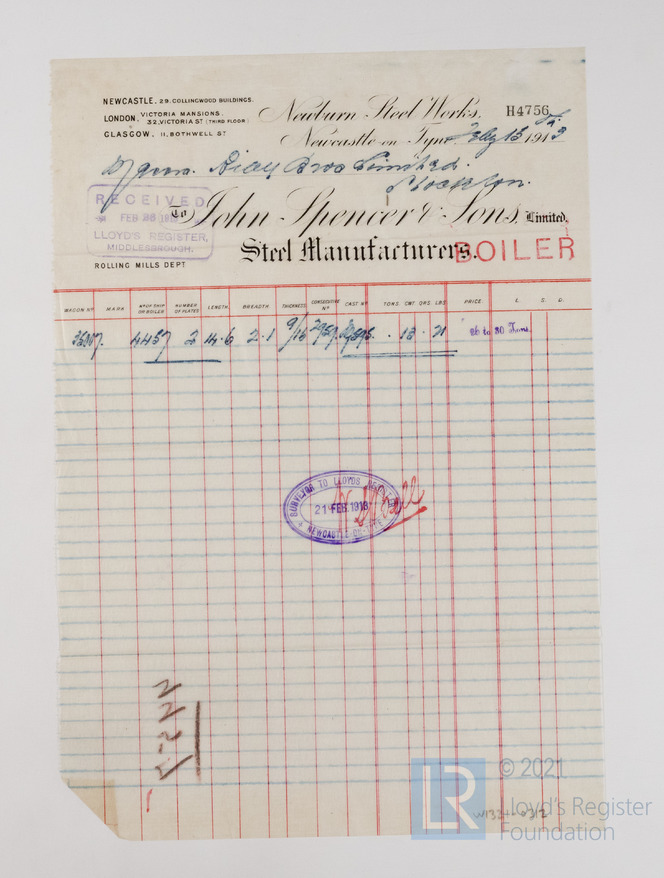 NEWCASTLE, 29, COLLINGWOOD BUILDINGS.
LONDON, VICTORIA MANSIONS, 32, VICTORIA ST (THIRD FLOOR)
GLASGOW, 11, BOTHWELL ST
Newburn Steel Works,
H4756
Newcastle-on-Tyne 1913
Bros Limited.
Stockton.
RECEIVED
FEB
LLOYD'S REGISTER,
MIDDLESBROUGH.
To John Spencer & Sons, Limited,
Steel Manufacturers.
BOILER
ROLLING MILLS DEPT
WAGON Nº MARK Nº OF SHIP OR BOILER NUMBER OF PLATES LENGTH. BREADTH. THICKNESS CONSECUTIVE Nº CAST Nº TONS. CWT. QRS. LBS. PRICE. £. S. D.
4457 2 14.6 2.1 9/16 . 13 . 21 26 to 30 Tons.
SURVEYOR TO LLOYDS REGISTER
21 FEB. 1913
NEWCASTLE-ON-TYNE
LR
© 2021
Lloyd's Register
Foundation
W1334-0312